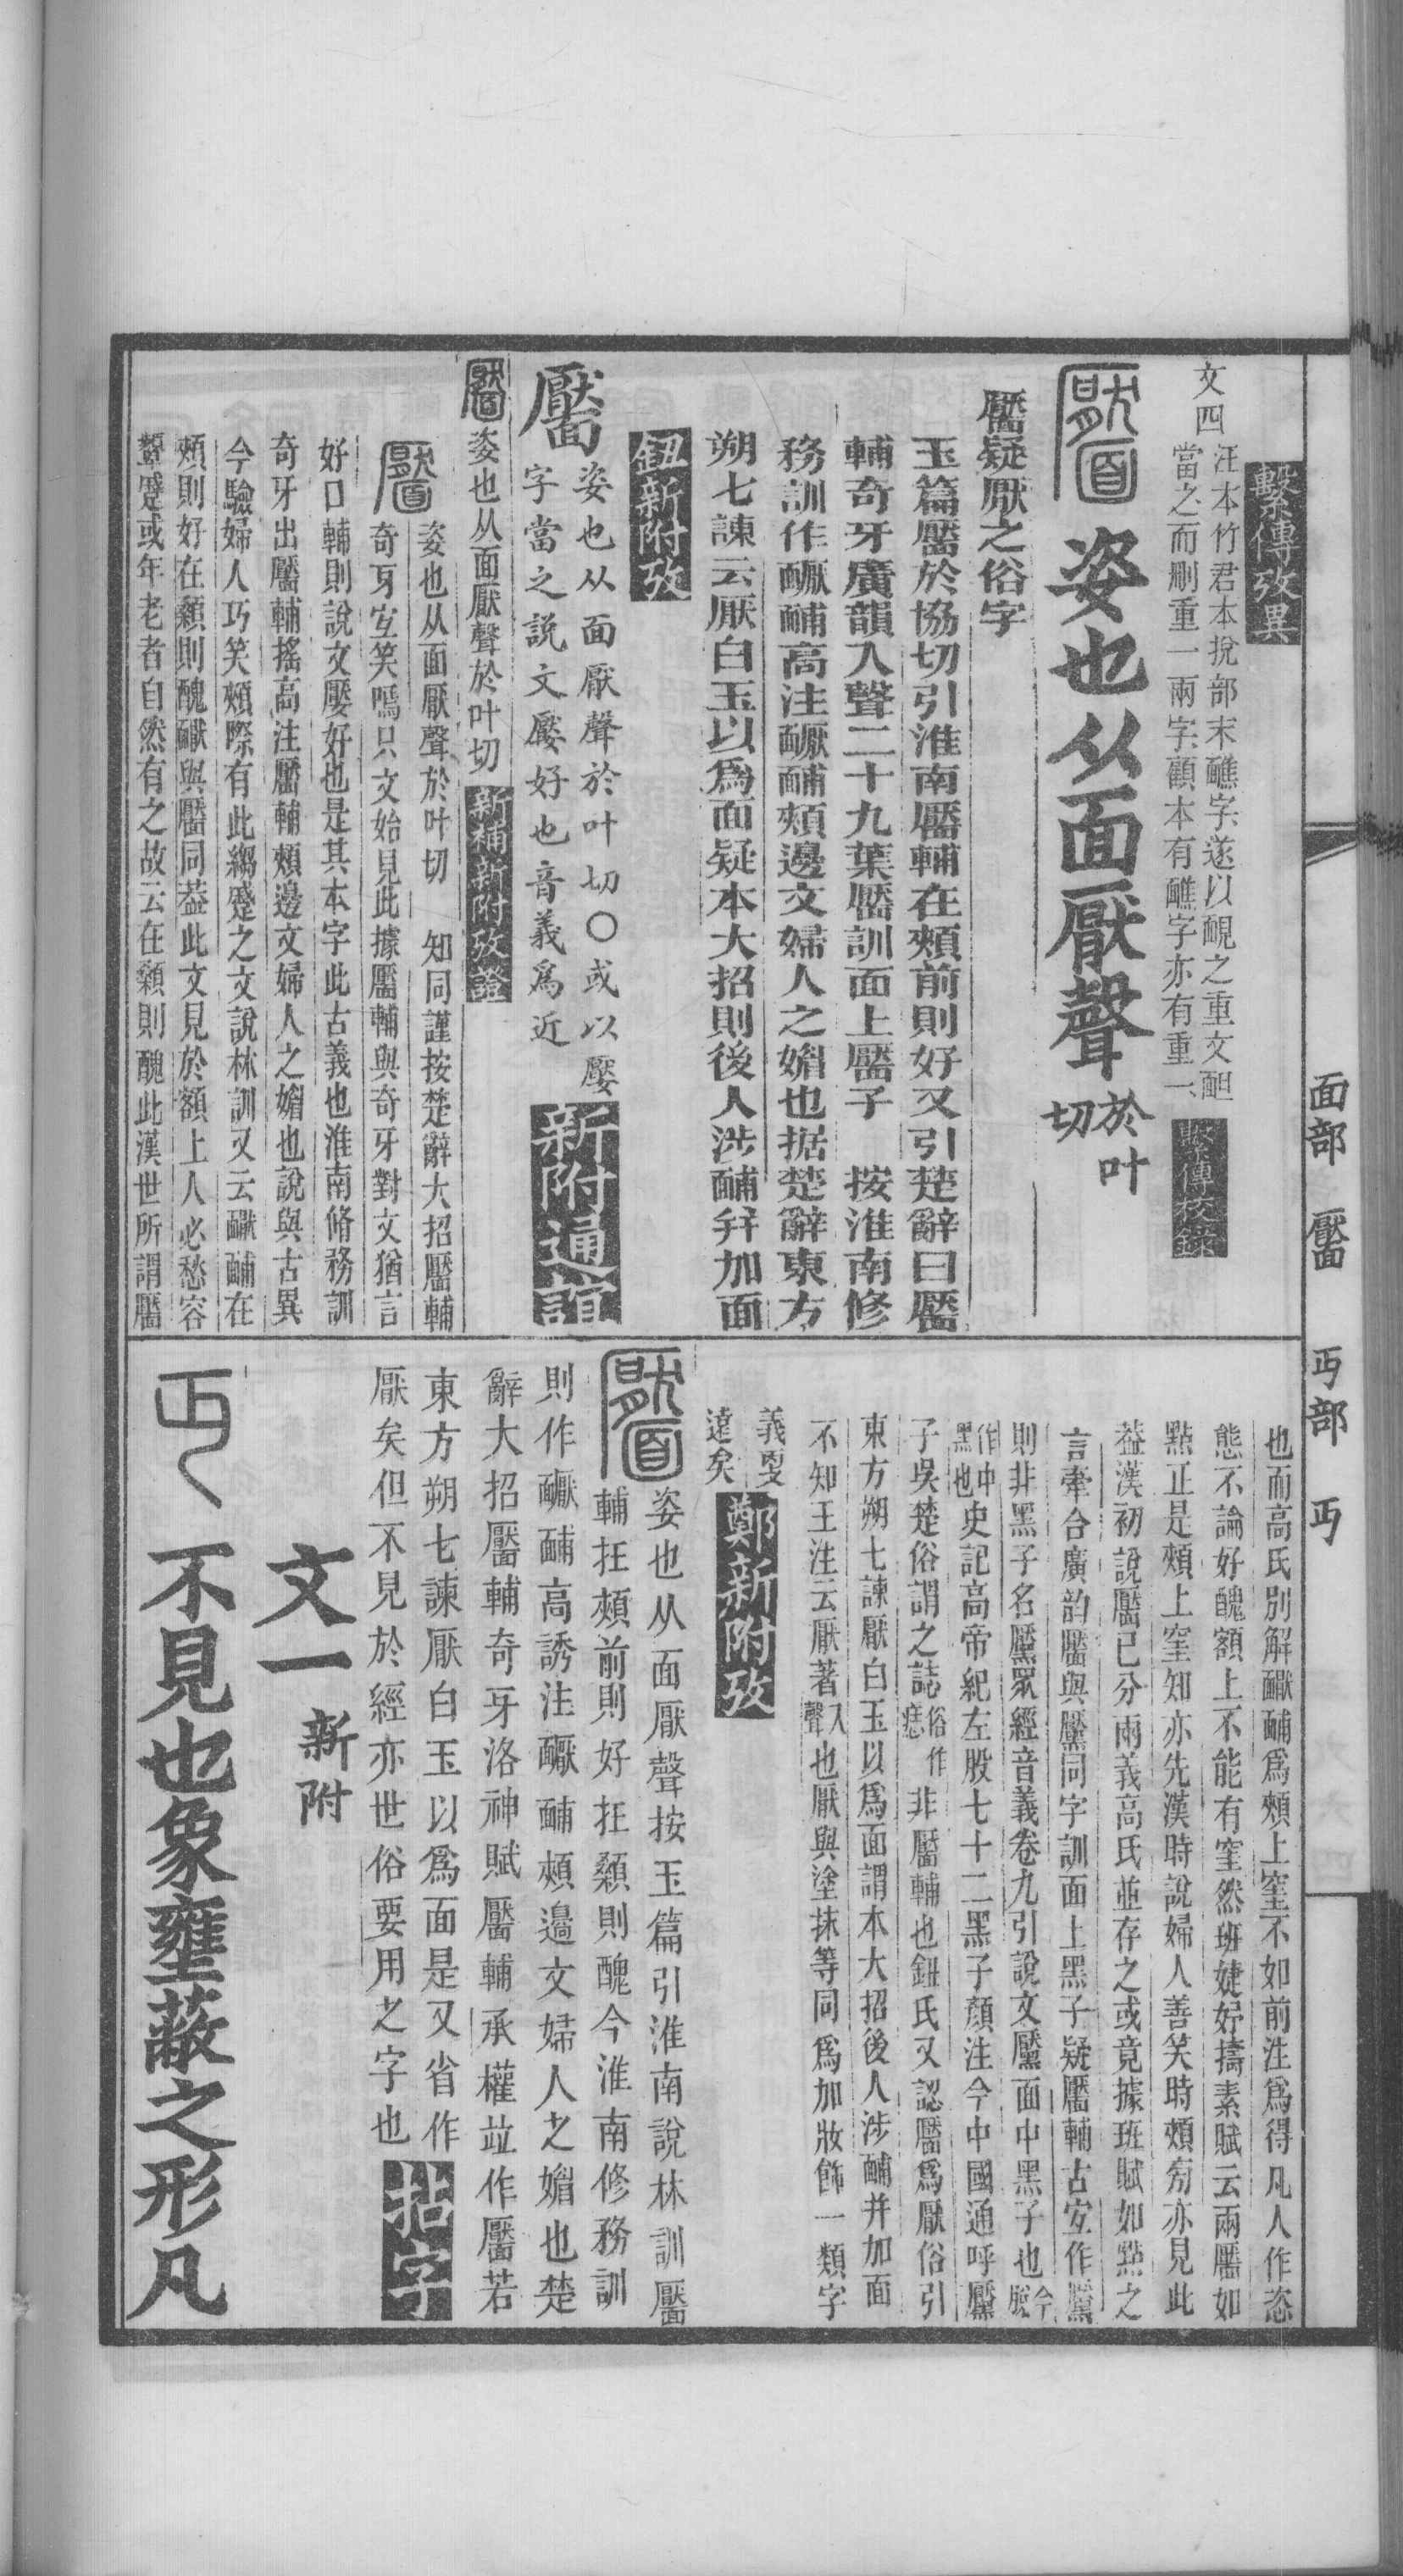 繫傳攷異
文四
汪本竹君本挩部末醮字遂以靦之重文䩆
當之而刪重一兩字顧本有醮字亦有重一
繫傳校錄
靨
姿也从面厭聲
於叶
切
靨疑厭之俗字
玉篇靨於協切引淮南靨輔在頰前則好又引楚辭曰靨
輔奇牙廣韻入聲二十九葉靨訓面上靨子　按淮南修
務訓作䩞䩉高注䩞䩉頰邊文婦人之媚也据楚辭東方
朔七諫云厭白玉以爲面疑本大招則後人涉䩉幷加面
鈕新附攷
靨
姿也从面厭聲於叶切○或以嬮
字當之說文嬮好也音義爲近
新附通誼
靨
姿也从面厭聲於叶切
新補新附攷證
靨
姿也从面厭聲於叶切　知同謹按楚辭大招靨輔
奇牙宜笑嘕只文始見此據靨輔與奇牙對文猶言
好口輔則說文嬮好也是其本字此古義也淮南脩務訓
奇牙出靨輔搖高注靨輔頰邊文婦人之媚也說與古異
今驗婦人巧笑頰際有此縐蹙之文說林訓又云䩞䩉在
頰則好在顙則醜䩞與靨同葢此文見於額上人必愁容
顰蹙或年老者自然有之故云在顙則醜此漢世所謂靨
也而高氏別解䩞䩉爲頰上窐不如前注爲得凡人作恣
態不論好醜額上不能有窐然班婕妤擣素賦云兩靨如
點正是頰上窐知亦先漢時說婦人善笑時頰旁亦見此
葢漢初說靨已分兩義高氏並存之或竟據班賦如點之
言牽合廣韵靨與黶同字訓面上黑子疑靨輔古宜作黶
則非黑子名黶眾經音義卷九引說文黶面中黑子也今脫
作中
黑也
史記高帝紀左股七十二黑子顏注今中國通呼黶
子吳楚俗謂之誌俗作
痣
非靨輔也鈕氏又認靨爲厭俗引
東方朔七諫厭白玉以爲面謂本大招後人涉䩉并加面
不知王注云厭著入
聲
也厭與塗抹等同爲加妝飾一類字
義㪅
遠矣
鄭新附攷
靨
姿也从面厭聲按玉篇引淮南說林訓靨
輔在頰前則好在顙則醜今淮南修務訓
則作䩞䩉高誘注䩞䩉頰邊文婦人之媚也楚
辭大招靨輔奇牙洛神賦靨輔承權竝作靨若
東方朔七諫厭白玉以爲面是又省作
厭矣但不見於經亦世俗要用之字也
拈字
文一
新附
丏
不見也象壅蔽之形凡
面部　靨　丏部　丏